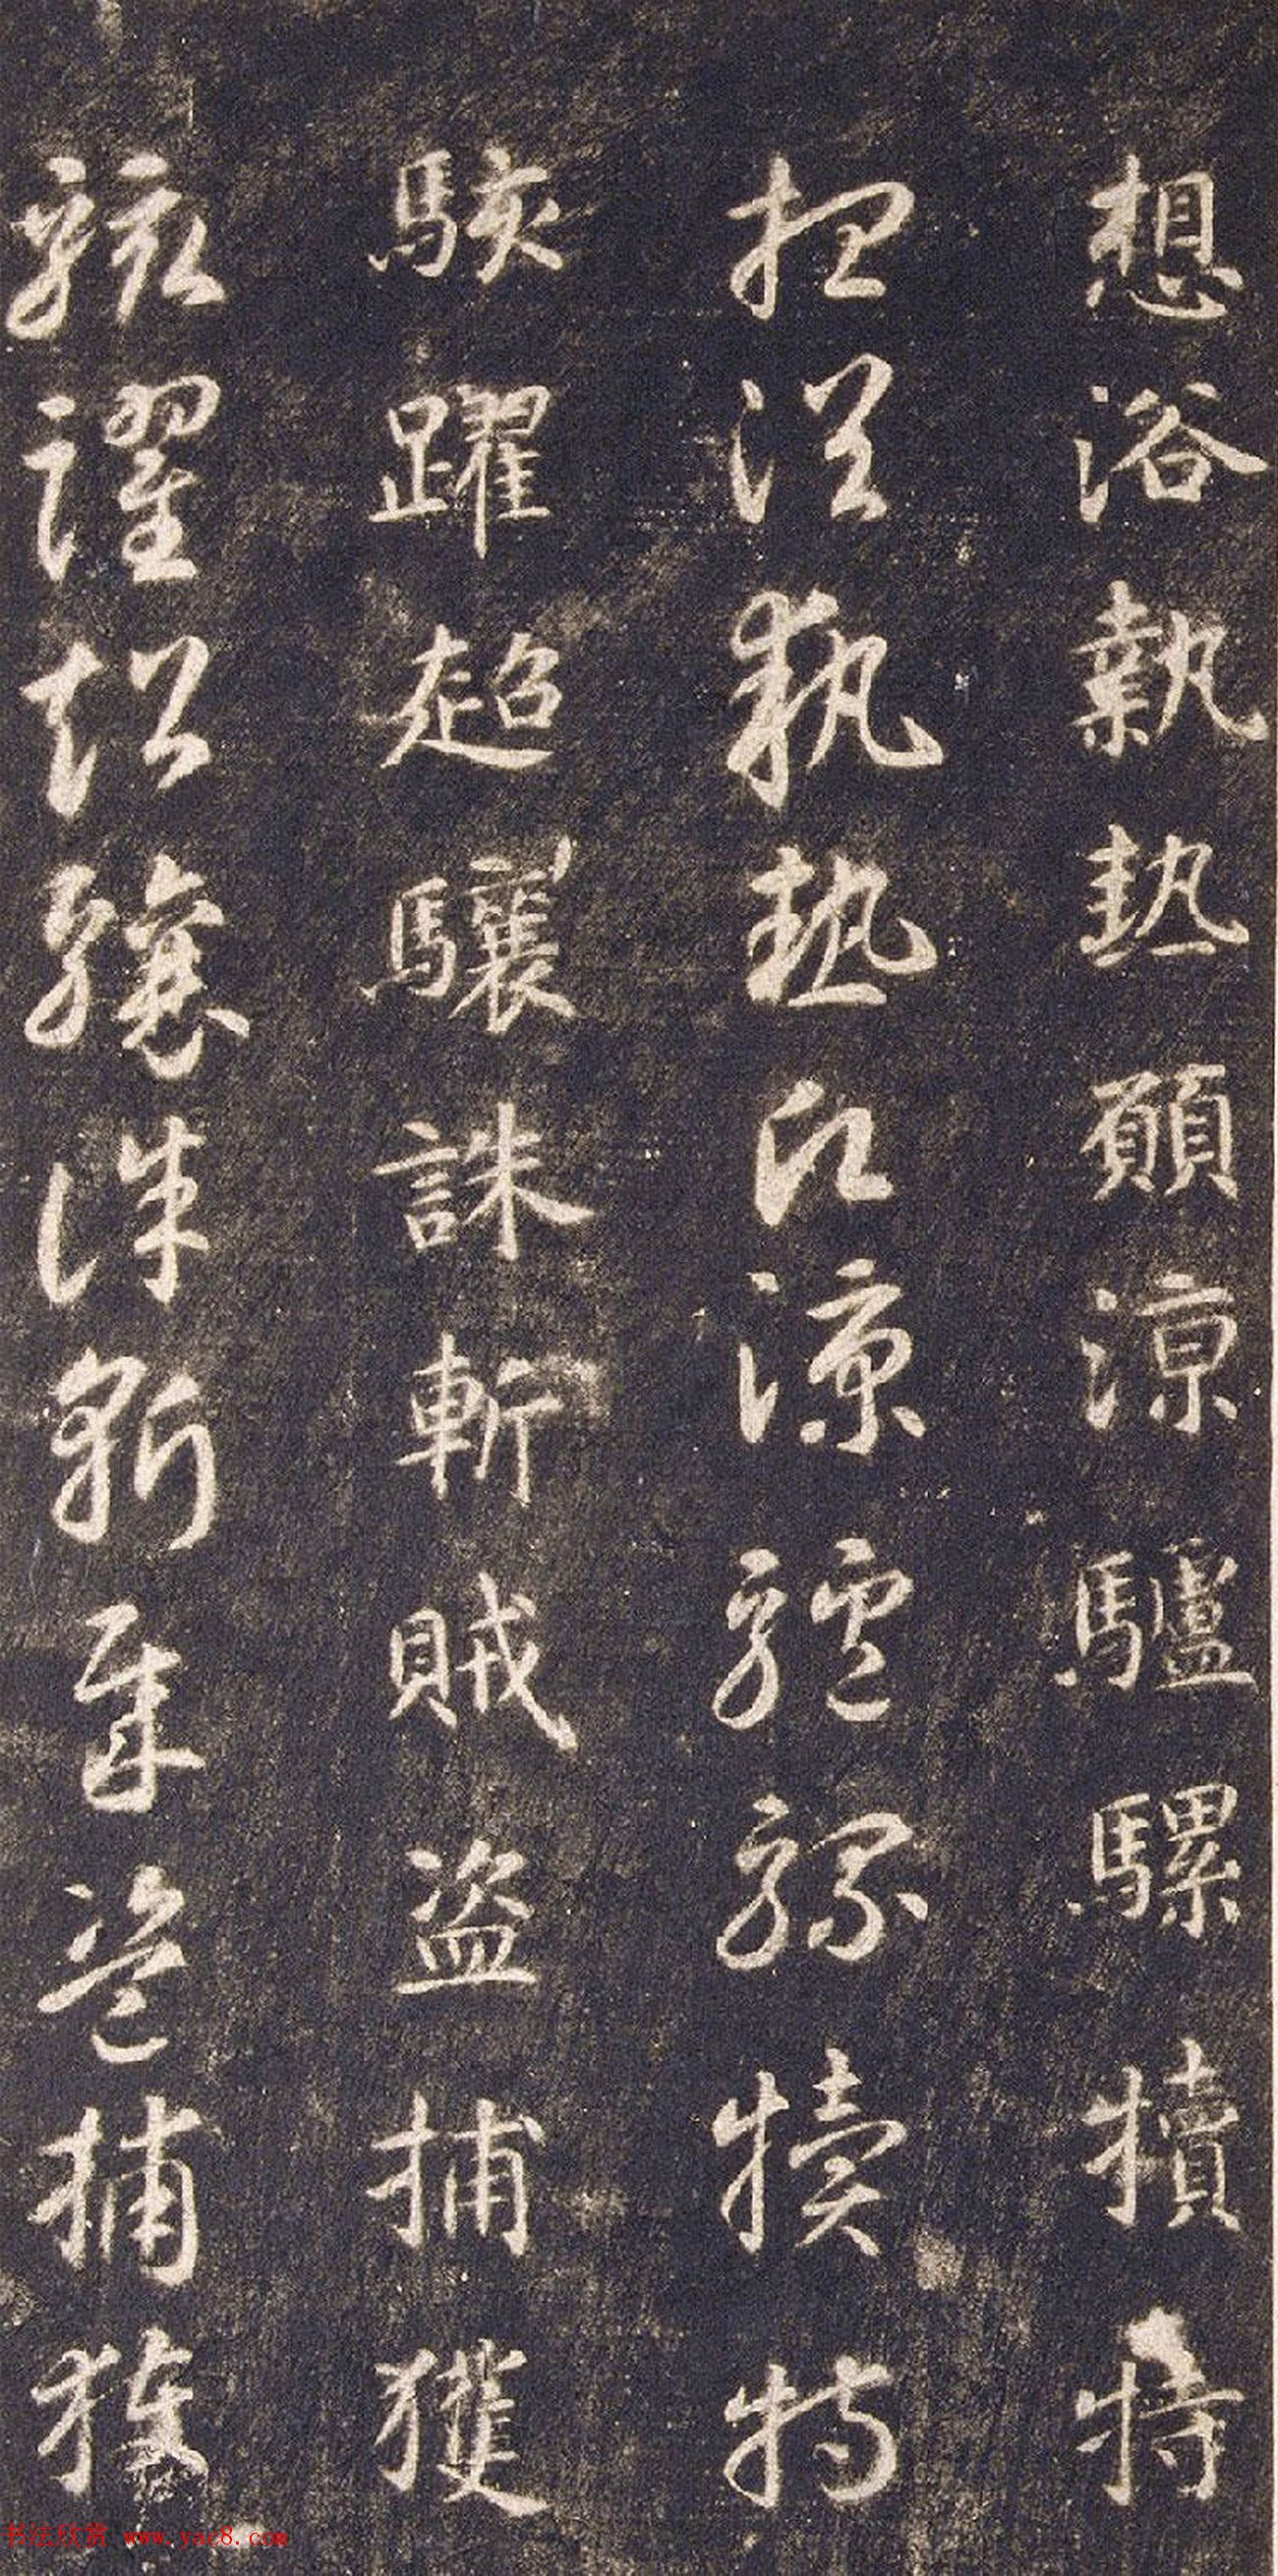 想浴執熱願涼驢騾犢特
想浴執熱願涼驢騾犢特
駭躍超驤誅斬賊盜捕獲
駭躍超驤誅斬賊盜捕獲
书法欣赏 www.yac8.com